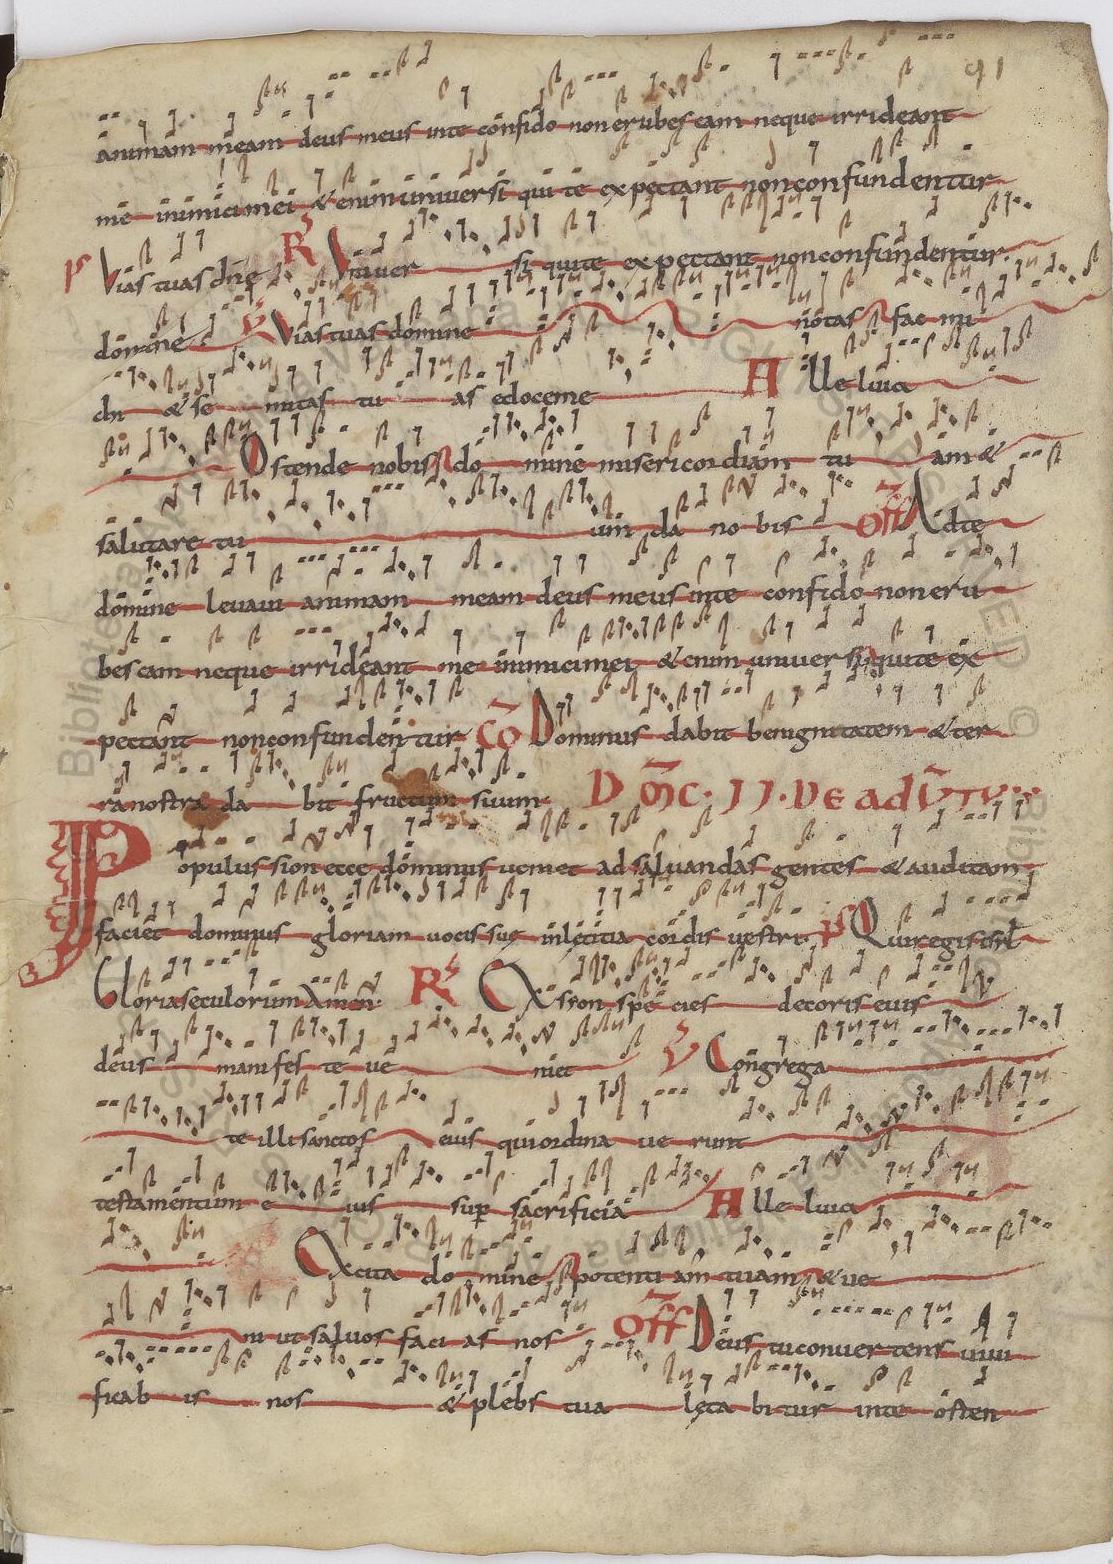 91
animam meam deus meus inte confido non erubescam neque irrideant
me inimici mei & enim universi qui te expectant non confundentur
ps Vias tuas dne R Univer si qui te expectant non confundentur
domine V Vias tuas domine notas fac mi
chi & se mitas tu as edoceme Alleluia
Ostende nobis domine misericordiam tu am &
salutare tu um da nobis Off Adte
domine levavi animam meam deus meus inte confido non eru
bescam neque irrideant me inimici mei & enim universi qui te ex
pectant non confundentur Co Dominus dabit benignitatem & ter
ra nostra da bit fructum suum Dom̄c. II. De adv̄tu
Populus sion ecce dominus veniet ad salvandas gentes & auditam
faciet dominus gloriam vocis suę inlętitia cordis vestri ps Qui regis isrl
Gloria seculorum Amen R Ex sion species decoris eius
deus manifeste ve niet V Congrega
te illi sanctos eius qui ordina ve runt
testamentum e ius sup sacrificia Alleluia
Excita domine potenti am tuam & ve
ni ut salvos faci as nos Off Deus tu convertens vivi
ficab is nos & plebs tua lęta bitur inte osten